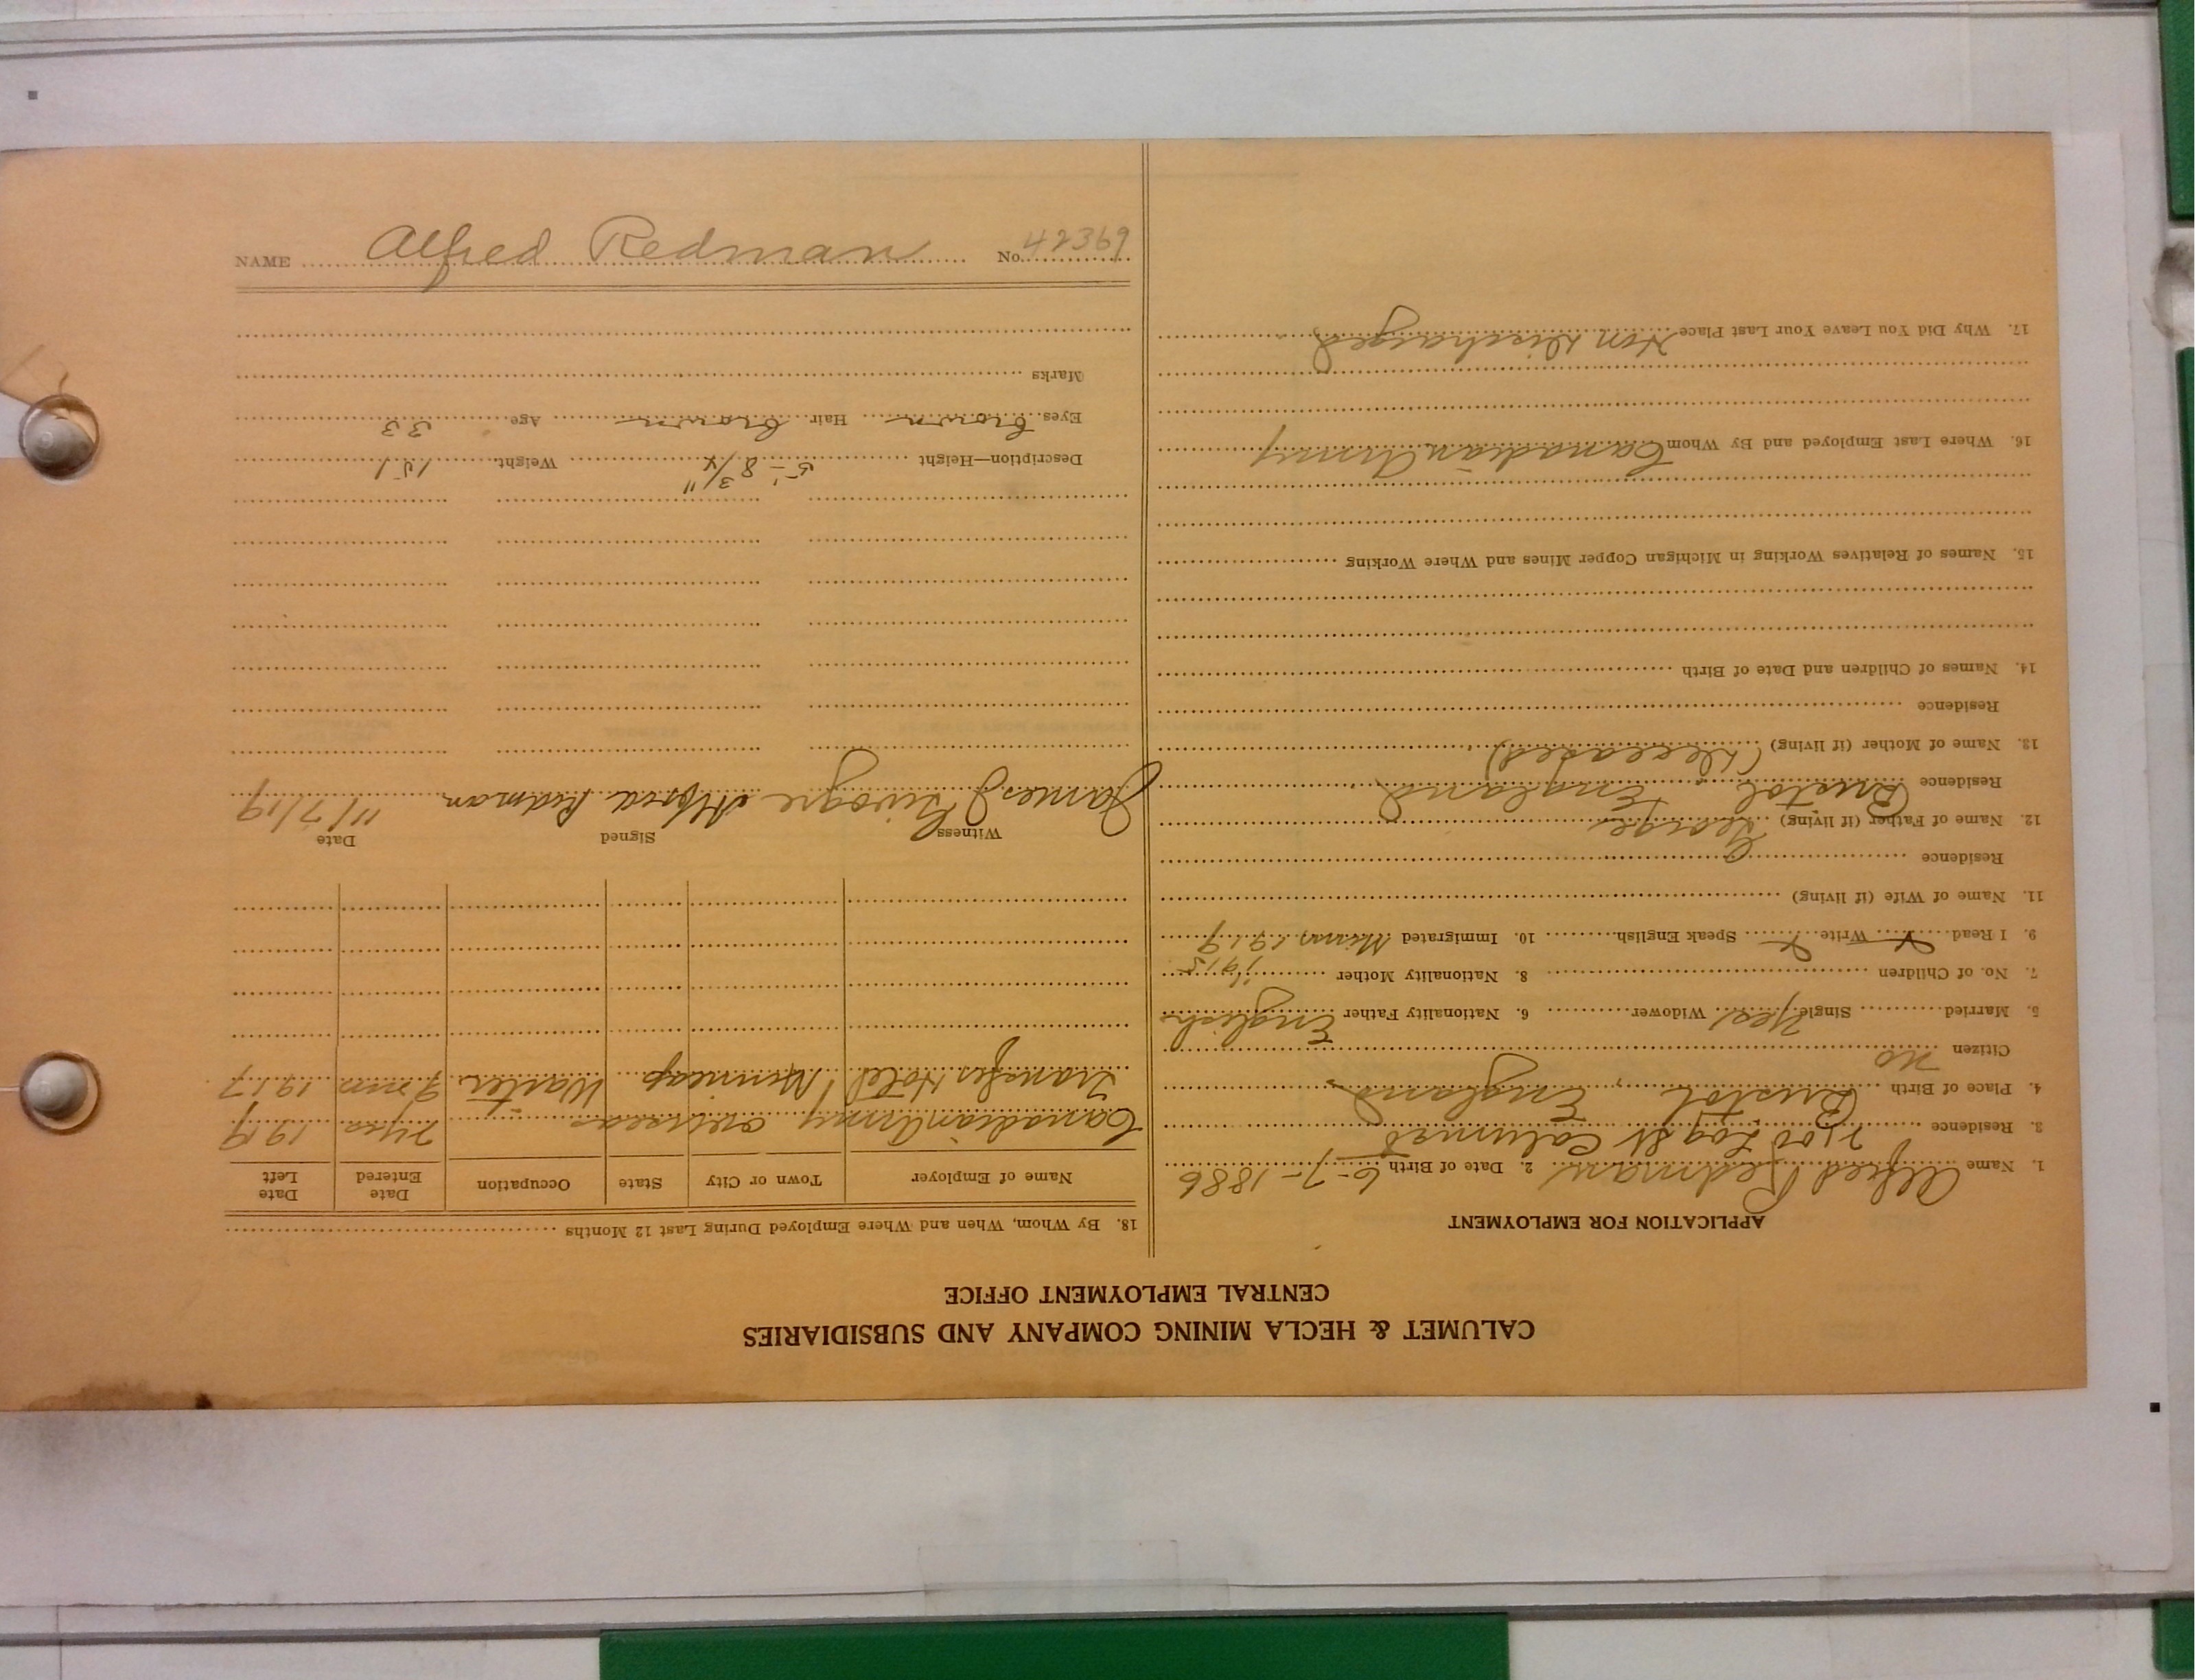 CALUMET & HECLA MINING COMPANY AND SUBSIDIARIES
CENTRAL EMPLOYMENT OFFICE
APPLICATION FOR EMPLOYMENT
1. Name Alfred Redman 2. Date of Birth 6-7-1886
3. Residence Log St Calumet
4. Place of Birth Bristol, England
Citizen no
5. Married Single Yes Widower 6. Nationality Father English
7. No. of Children 8. Nationality Mother 1915
9. I Read X Write X Speak English 10. Immigrated 1919
11. Name of Wife (if living)
Residence
12. Name of Father (if living) George
Residence Bristol England
13. Name of Mother (if living) (Deceased)
Residence
14. Names of Children and Date of Birth
15. Names of Relatives Working in Michigan Copper Mines and Where Working
16. Where Last Employed and By Whom Canadian Army
17. Why Did You Leave Your Last Place Hon Discharged
18. By Whom, When and Where Employed During Last 12 Months
Name of Employer Town or City State Occupation Date Entered Date Left
Canadian Army overseas 2 yrs 1919
Hotel Minneap Waiter 9 mos 1917
Witness Signed Date
James Alfred Redman 11/7/19
Description—Height 5'-8 3/4" Weight 151
Eyes brown Hair brown Age 33
Marks
NAME Alfred Redman No. 42369